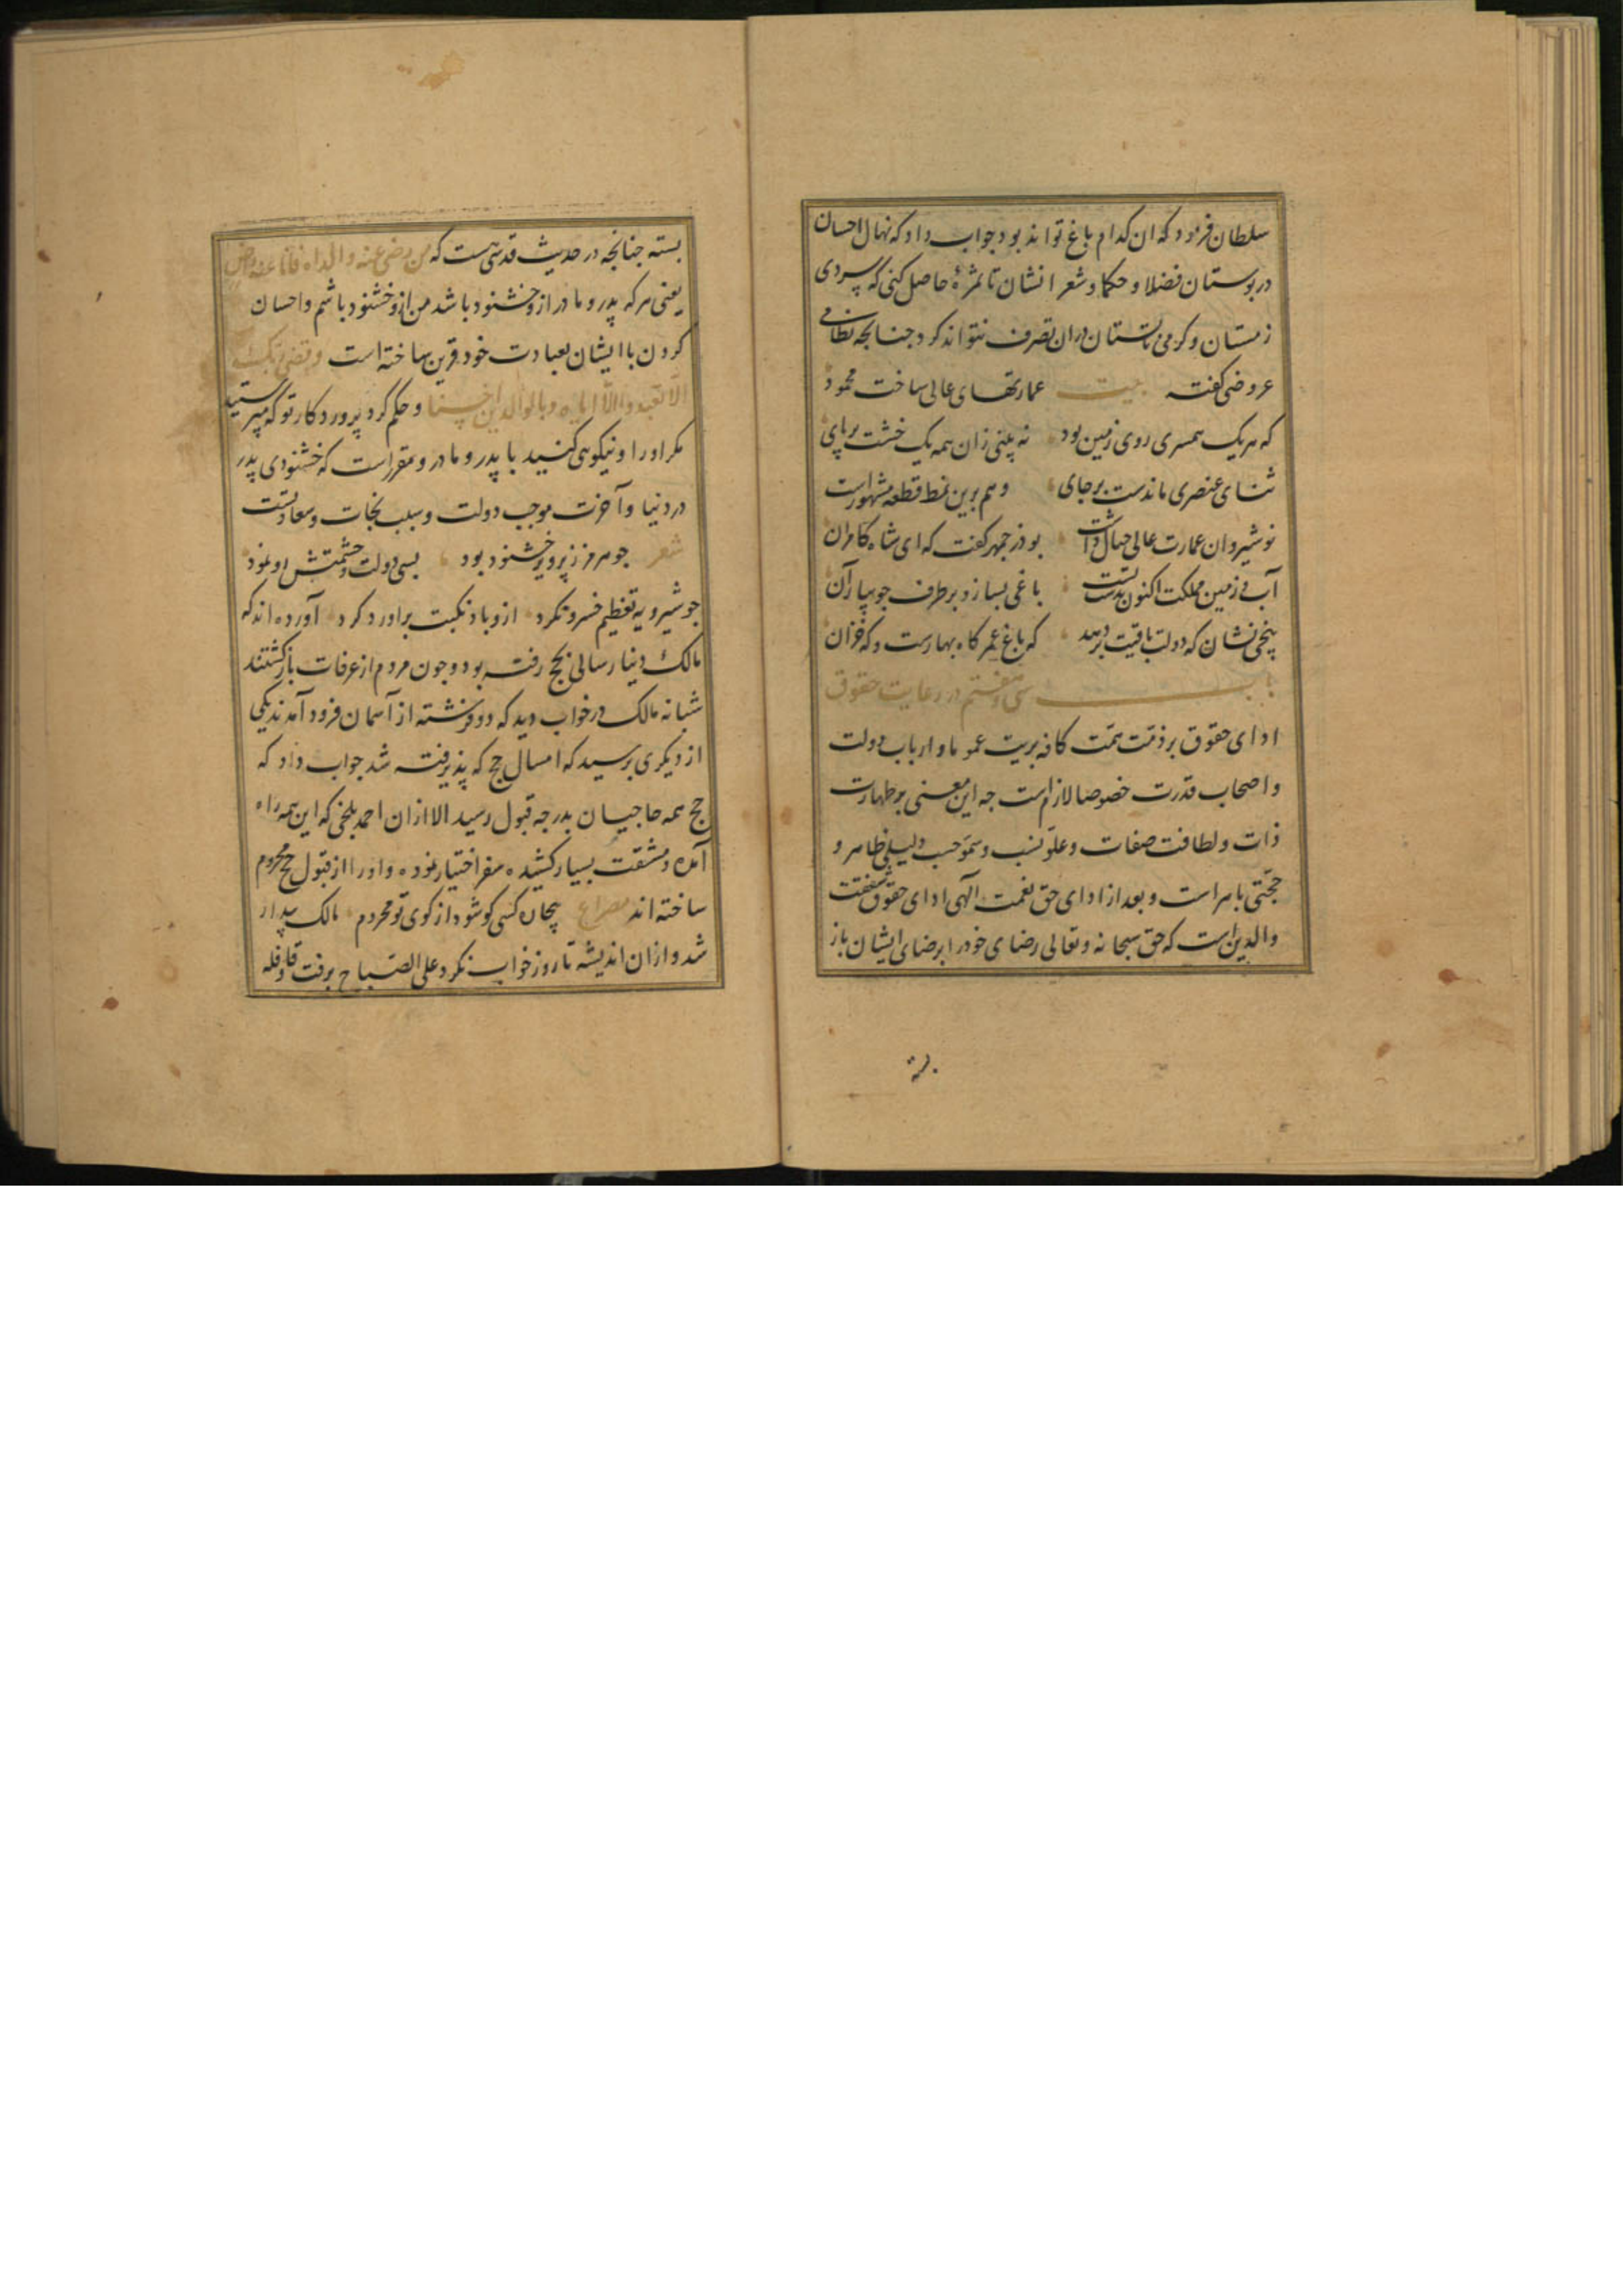 سلطان فرمود که ان کدام باغ تواند بود جواب داد که نهال احسان
در بوستان فضلا و حکما و شعرا نشان تا ثمرهٔ حاصل کنی که سردی
زمستان و کرمی تابستان دران تصرف نتواند کرد جنانجه نظامی
عروضی کفته بیت عمارتهای عالی ساخت محمود
که هر یک همسری روی زمین بود نه بینی زان همه یک خشت بر پای
ثنای عنصری ماندست بر جای و هم برین نمط قطعه مشهور است
نوشیروان عمارت عالی خیال داشت بوذرجمهر کفت که ای شاه کامران
آب و زمین مملکت اکنون بدست تست باغی بساز و بر طرف جویبار آن
بیخی نشان که دولت باقیت بر دهد که باغ عمر کاه بهارست و که خزان
باب سی و هفتم در رعایت حقوق
ادای حقوق بر ذمت همت کافه بریت عموما و ارباب دولت
و اصحاب قدرت خصوصا لازم است جه این معنی بر طهارت
ذات و لطافت صفات و علو نسب و سمو حسب دلیلی ظاهر و
حجتی باهر است و بعد از ادای حق نعمت الهی ادای حقوق شفقت
والدین است که حق سبحانه و تعالی رضای خود را برضای ایشان باز
بسته
بسته جنانجه در حدیث قدسی هست که من رضی عنه والداه فانا عنه راض
یعنی هر که پدر و مادر ازو خشنود باشد من ازو خشنود باشم و احسان
کردن با ایشان بعبادت خود قرین ساخته است وقضی ربک
الا تعبدوا الا ایاه وبالوالدین احسانا و حکم کرد پرورد کار تو که مپرستید
مکر او را و نیکویی کنید با پدر و مادر و مقرر است که خشنودی پدر
در دنیا و آخرت موجب دولت و سبب نجات و سعادتست
شعر جو هرمز ز پرویز خشنود بود بسی دولت و حشمتش رو نمود
جو شیرویه تعظیم خسرو نکرد ازو باد نکبت براورد کرد آورده اند که
مالک دینار سالی بحج رفته بود و جون مردم از عرفات بازکشتند
شبانه مالک در خواب دید که دو فرشته از آسمان فرود آمدند یکی
از دیکری پرسید که امسال حج که پذیرفته شد جواب داد که
حج همه حاجیان بدرجه قبول رسید الا ازان احمد بلخی که این همه راه
آمده و مشقت بسیار کشیده سفر اختیار نموده و او را از قبول حج محروم
ساخته اند مصراع بیجان کسی کو شود از کوی تو محروم مالک بیدار
شد و ازان اندیشه تا روز خواب نکرد علی الصباح برفت و قافله